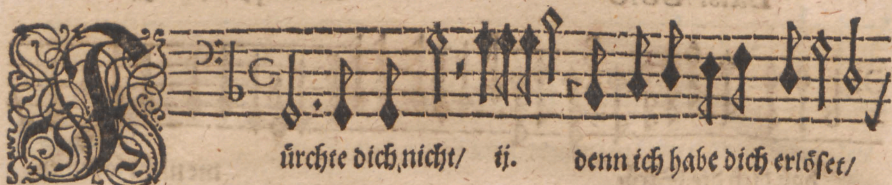 Fürchte dich nicht/ ij. denn ich habe dich erlöset/